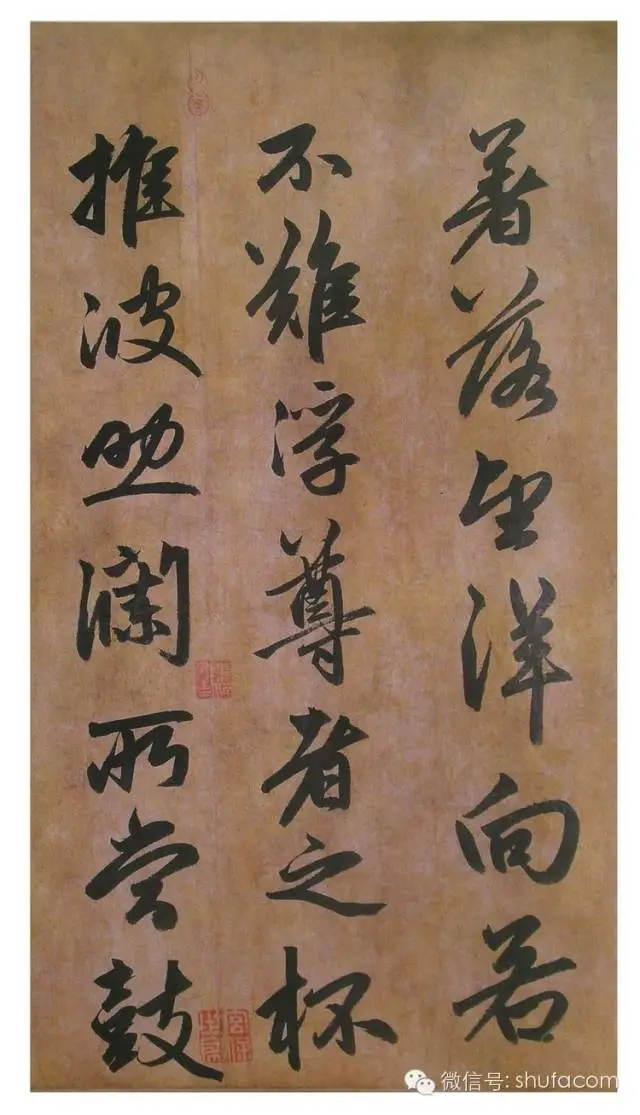 著落望洋向若
不難浮尊者之杯
推波助瀾所尝鼓
微信号: shufacom